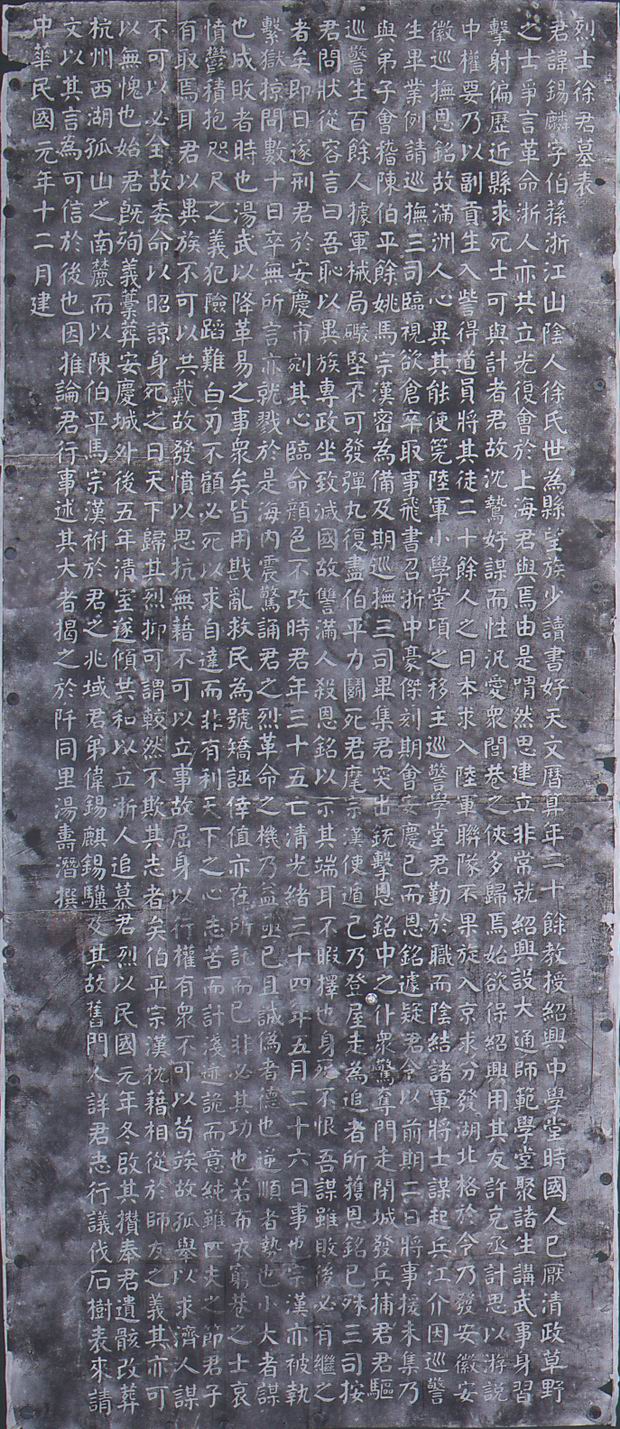 烈士徐君墓表
君諱錫麟字伯蓀浙江山陰人徐氏世為縣望族少讀書好天文曆算年二十餘教授紹興中學堂時國人已厭清政草野
之士爭言革命浙人亦共立光復會於上海君與焉由是喟然思建立非常就紹興設大通師範學堂聚諸生講武事身習
擊射徧歷近縣求死士可與計者君故沈鷙好謀而性汎愛眾閭巷之俠多歸焉始欲保紹興用其友許克丞計思以游說
中權要乃以副貢生入訾得道員將其徒二十餘人之日本求入陸軍聯隊不果旋入京求分發湖北格於令乃發安徽安
徽巡撫恩銘故滿洲人心異其能使筦陸軍小學堂頃之移主巡警學堂君勤於職而陰結諸軍將士謀起兵江介因巡警
生畢業例請巡撫三司臨視欲倉卒取事飛書召浙中豪傑刻期會安慶已而恩銘遽疑君令以前期二日將事援未集乃
與弟子會稽陳伯平餘姚馬宗漢密為備及期巡撫三司畢集君突出銃擊恩銘中之仆眾驚奪門走閉城發兵捕君君驅
巡警生百餘人據軍械局礮堅不可發彈丸復盡伯平力鬭死君麾宗漢使遁己乃登屋走為追者所獲恩銘已殊三司按
君問狀從容言曰吾恥以異族專政坐致滅國故讐滿人殺恩銘以示其端耳不暇擇也身死不恨吾謀雖敗後必有繼之
者矣即日遂刑君於安慶市剜其心臨命顏色不改時君年三十五亡清光緒三十四年五月二十六日事也宗漢亦被執
繫獄掠問數十日卒無所言亦就戮於是海內震驚誦君之烈革命之機乃益亟已且誠偽者德也逆順者勢也小大者謀
也成敗者時也湯武以降革易之事眾矣皆用戡亂救民為號矯誣倖值亦在所託而已非必其功也若布衣窮巷之士哀
憤鬱積抱咫尺之義犯險蹈難白刃不顧必死以求自達而非有利天下之心志苦而計淺迹詭而意純雖匹夫之節君子
有取焉耳君以異族不可以共戴故發憤以思抗無藉不可以立事故屈身以行權有眾不可以苟竢故孤舉以求濟人謀
不可以必全故委命以昭諒身死之日天下歸其烈抑可謂較然不欺其志者矣伯平宗漢枕藉相從於師友之義其亦可
以無愧也始君既殉義藁葬安慶城外後五年清室遂傾共和以立浙人追慕君烈以民國元年冬啟其攢奉君遺骸改葬
杭州西湖孤山之南麓而以陳伯平馬宗漢祔於君之兆域君弟偉錫麒錫驥及其故舊門人詳君志行議伐石樹表來請
文以其言為可信於後也因推論君行事述其大者揭之於阡同里湯壽潛撰
中華民國元年十二月建